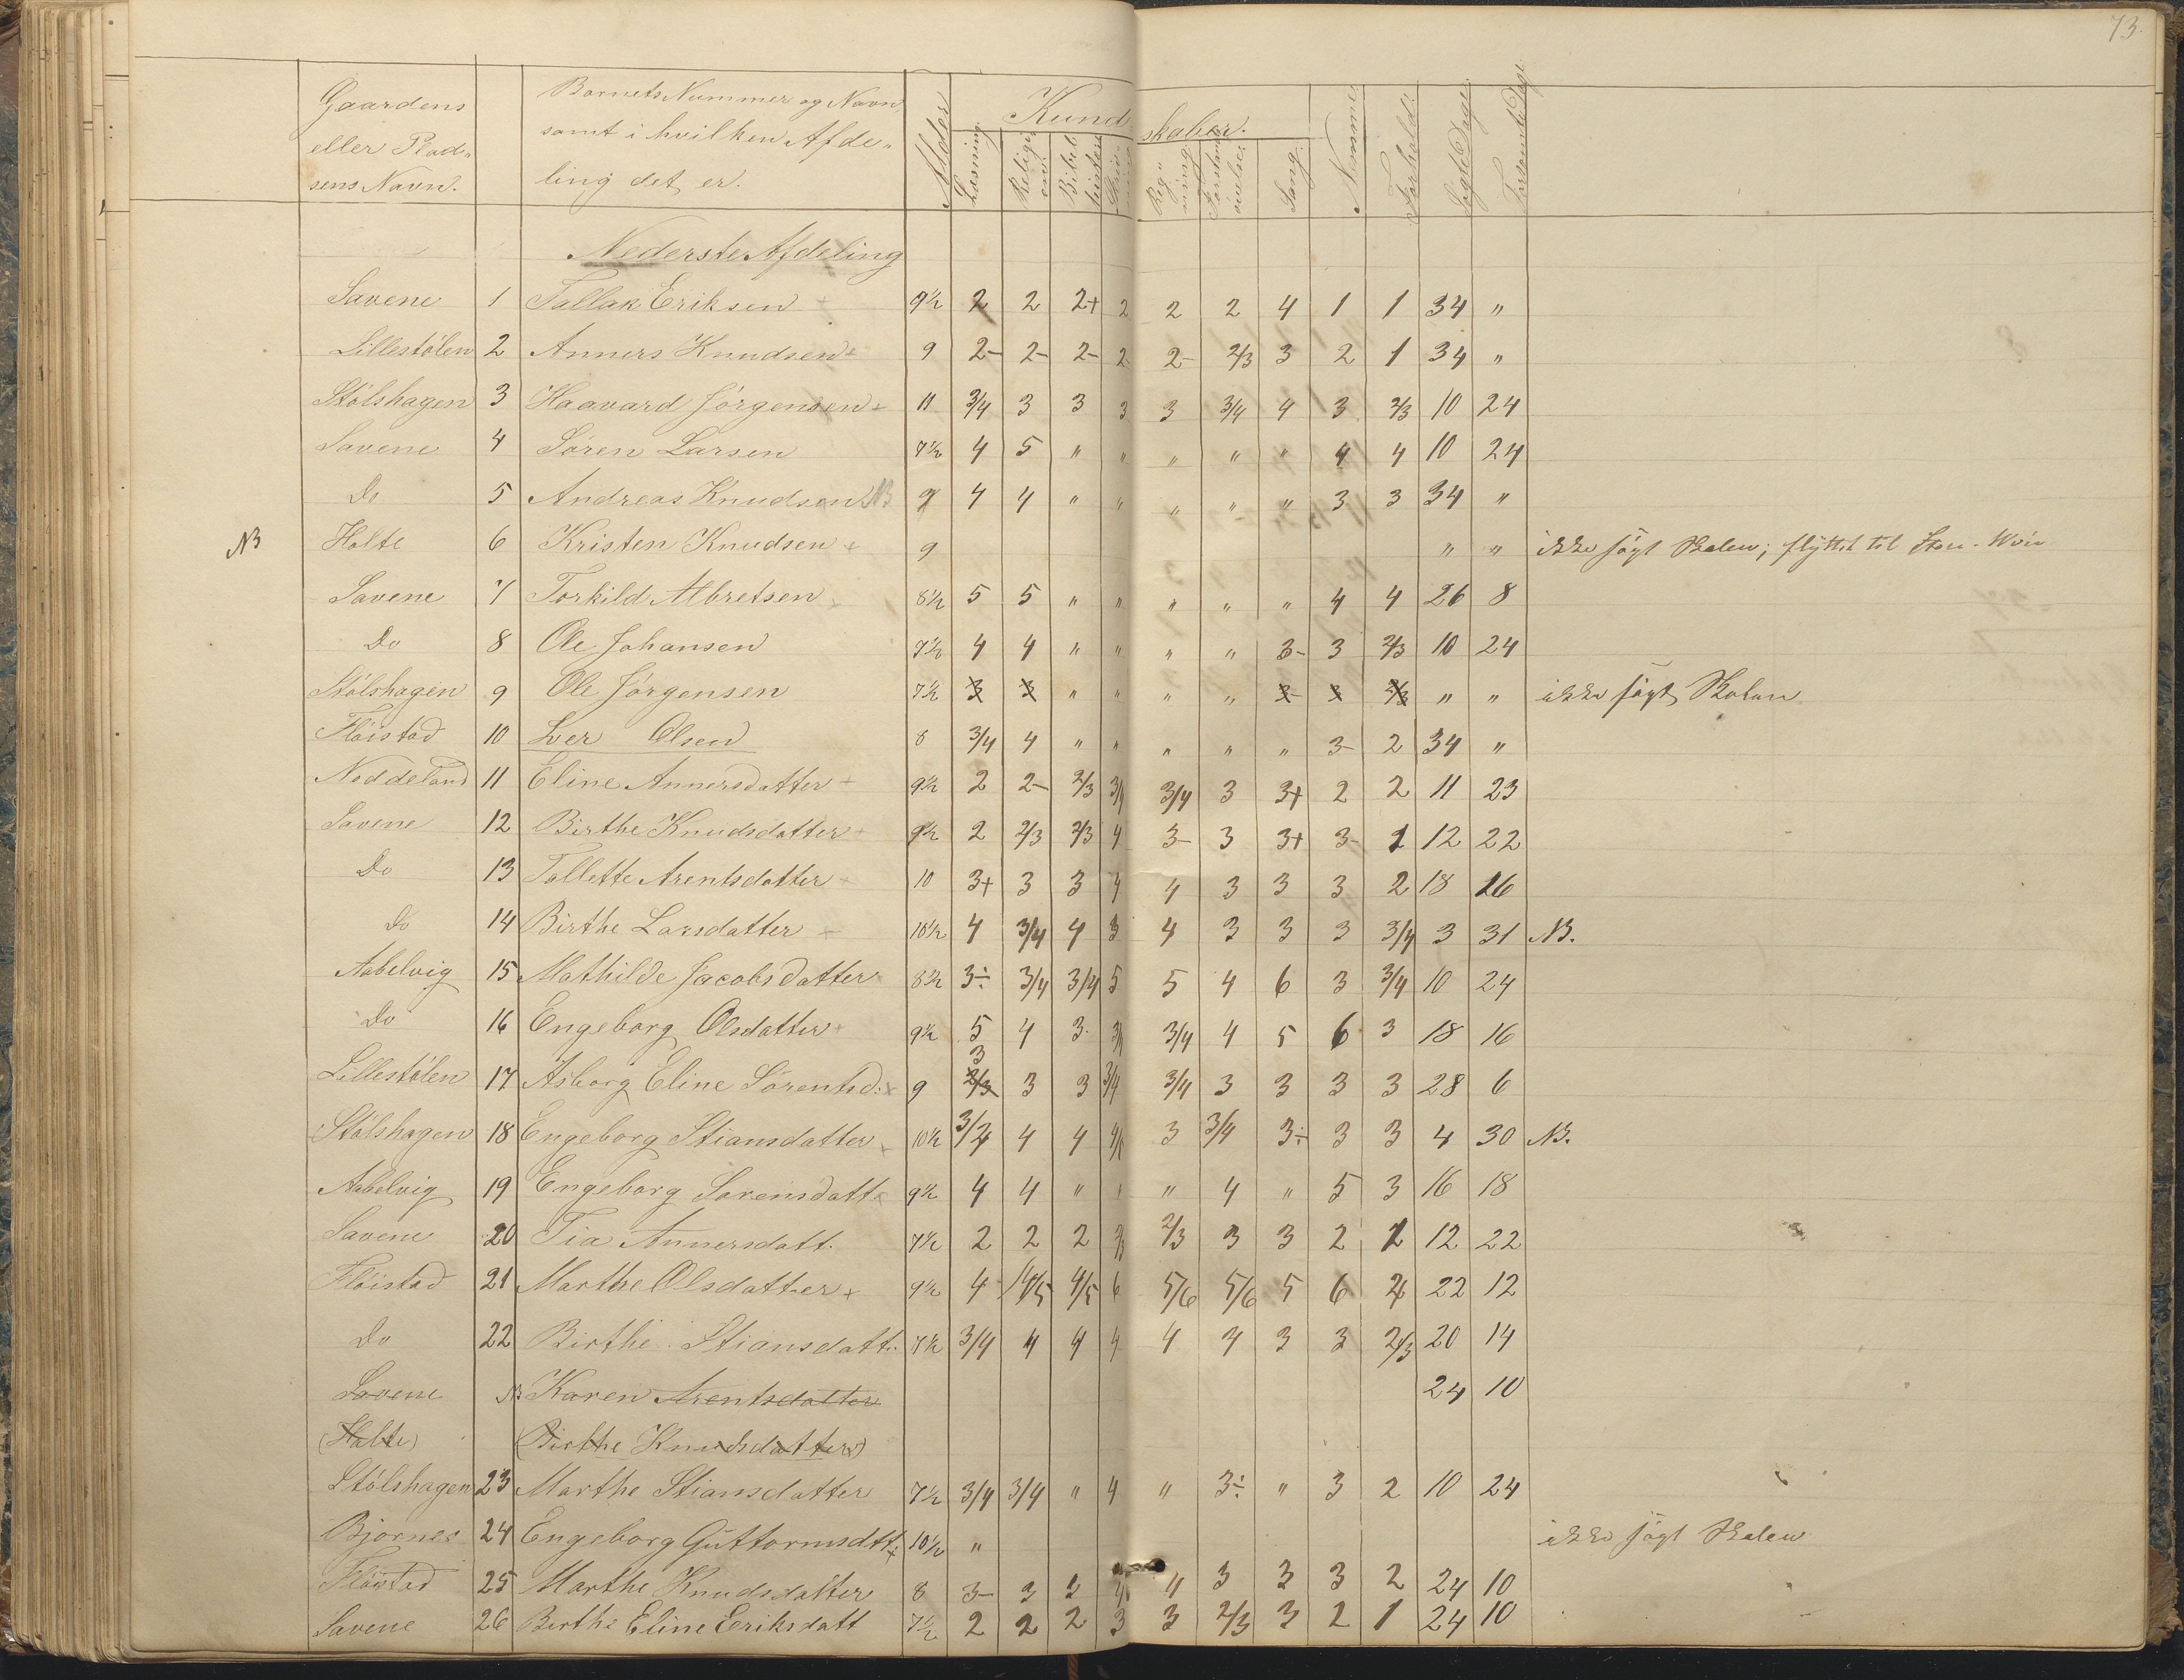 73.
Gaardens eller Plad„ sens Navn.
Barnets Nummer og Navn, samt i hvilken Afde„ ling det er.
Alder
Kundskaber.
Læsning. Religi on. Bibel historie Reg„ ning. Forstands øvelse. Sang.
Nemme. Forhold. Søgte Dage. Forsømte Dage
Nederste Afdeling
Savene 1 Tallak Eriksen + 9½ 2 2 2+ 2 2 2 4 1 1 34 "
Lillestölen 2 Anners Knudsen + 9 2- 2- 2- 2- 2- 2/3 3 2 1 34 "
Stölshagen 3 Haavard Jörgensen + 11 3/4 3 3 3 3 3/4 4 3 2/3 10 24
Savene 4 Sören Larsen 7½ 4 5 " " " " " 4 4 10 24
Do 5 Andreas Knudsen NB 9 4 4 " " " " " 3 3 34 "
NB Holte 6 Kristen Knudsen + 9 " " ikke søgt Skolen; flyttet til
Savene 7 Torkild Albretsen 8½ 5 5 " " " " " 4 4 26 8
Do 8 Ole Johansen 7½ 4 4 " " " " 3- 3 2/3 10 24
Stölshagen 9 Ole Jörgensen 7½ 3 3 " " " " 3- 3 2/3 " " ikke søgt Skolen
Flöistad 10 Iver Olsen 8 3/4 4 " " " " " 3- 2 34 "
Noddeland 11 Eline Annersdatter + 9½ 2 2- 2/3 3/4 3/4 3 3+ 2 2 11 23
Savene 12 Birthe Knudsdatter + 9½ 2 2/3 2/3 4 3- 3 3+ 3- 1 12 22
Do 13 Tallette Arentsdatter + 10 3+ 3 3 4 4 3 3 3 2 18 16
Do 14 Birthe Larsdatter + 10½ 4 3/4 4 3 4 3 3 3 3/4 3 31 NB.
Aabelvig 15 Mathilde Jacobsdatter 8½ 3÷ 3/4 3/4 5 5 4 6 3 3/4 10 24
Do 16 Engeborg Olsdatter + 9½ 5 4 3 3/4 3/4 4 5 6 3 18 16
Lillestölen 17 Asborg Eline Sörentsd: + 9 3 2/3 3 3 3/4 3/4 3 3 3 3 28 6
Stölshagen 18 Engeborg Stiansdatter + 10½ 3/4 4 4 4/5 3 3/4 3÷ 3 3 4 30 NB.
Aabelvig 19 Engeborg Sorensdatt + 9½ 4 4 " " " 4 " 5 3 16 18
Savene 20 Tia Annersdatt. 7½ 2 2 2 2/3 2/3 3 3 2 1 12 22
Flöistad 21 Marthe Olsdatter + 9½ 4 4/5 4/5 6 5/6 5/6 5 6 4 22 12
Do 22 Birthe Stiansdatt. 7½ 3/4 4 4 4 4 4 3 3 2/3 20 14
Savene NB Karen Arentsdatter 24 10
(Holte) (Birthe Knudsdatter)
Stölshagen 23 Marthe Stiansdatter 7½ 3/4 3/4 " 4 " 3÷ " 3 2 10 24
Bjornes 24 Engeborg Guttormsdtt. + 10½ " ikke søgt Skolen
Flöistad 25 Marthe Knudsdatter 8 3- 3 3 4 4 3 3 3 2 24 10
Savene 26 Birthe Eline Eriksdatt 7½ 2 2 2 3 3 2/3 3 2 1 24 10